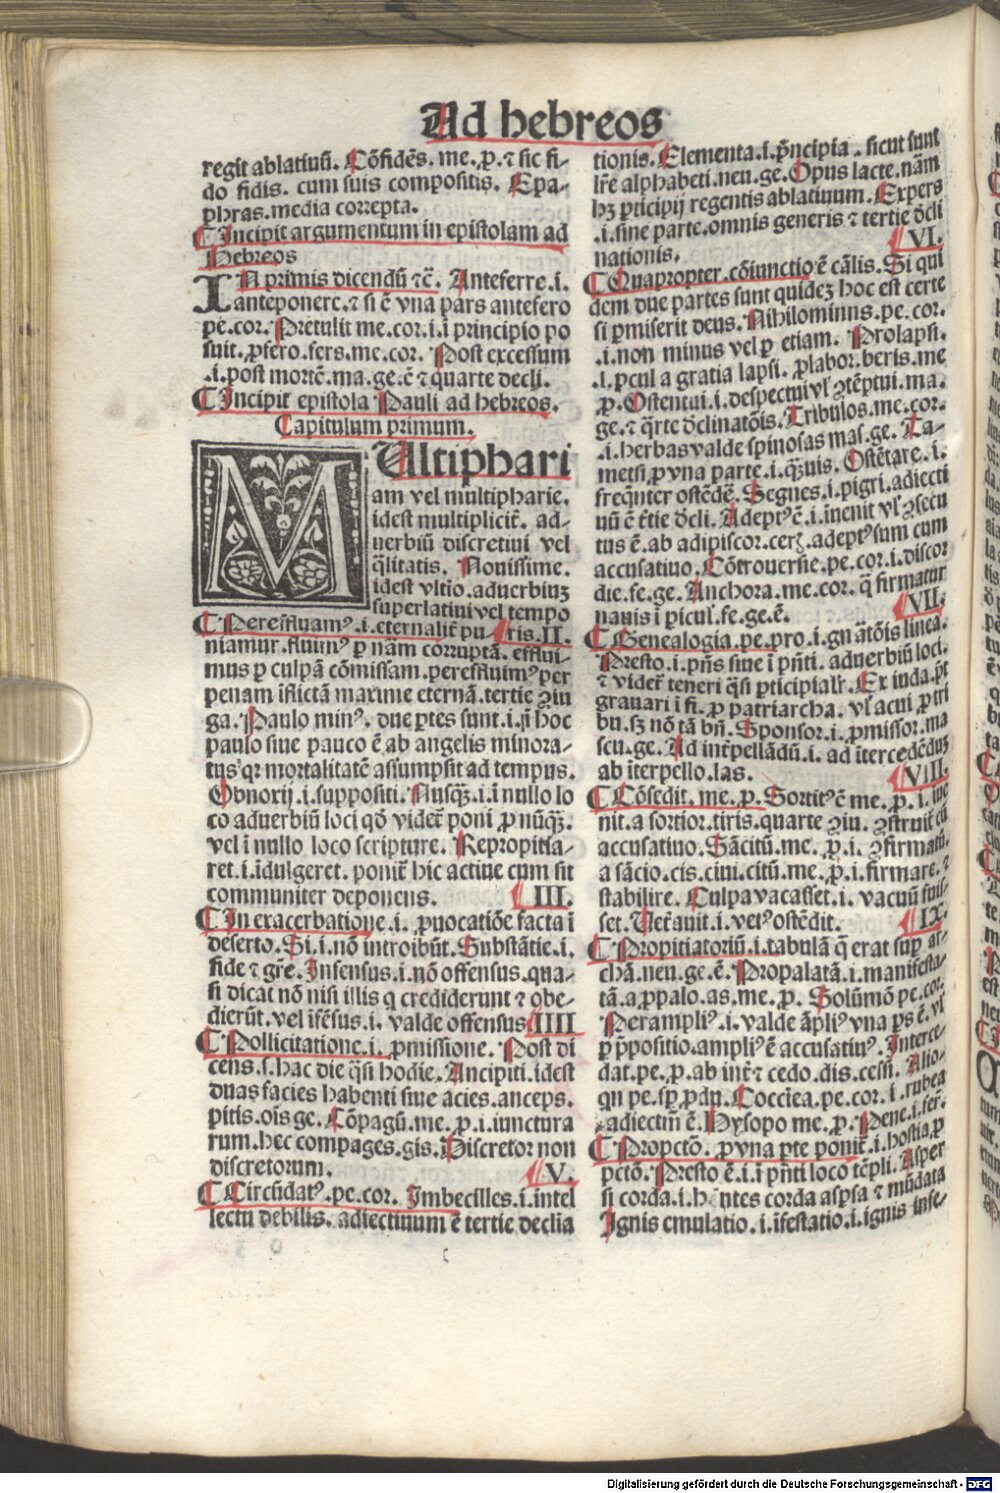 Ad hebreos
regit ablatiuū. Cōfidēs. me. p. ⁊ sic fi-
do fidis. cum suis compositis. Epa-
phras. media correpta.
Incipit argumentum in epistolam ad
Hebreos
IN primis dicendū ⁊c̄. Anteferre .i.
anteponere. ⁊ si ē vna pars antefero
pe. cor. Pretulit me. cor. i. ī principio po
suit. ꝓfero. fers. me. cor. Post excessum
.i. post mortē. ma. ge. ē ⁊ quarte decli.
Incipit epistola Pauli ad hebreos.
Capitulum primum.
MUltiphari
am vel multipharie.
idest multiplicit̄. ad-
uerbiū discretiui vel
q̄litatis. Nouissime.
idest vltio. aduerbiuz
superlatiui vel tempo
Pereffluamꝰ .i. eternalit̄ pu ris. II.
niamur. fluimꝰ p nām corruptā. efflui-
mus p culpā cōmissam. pereffluimꝰ per
penam īflictā maxime eternā. tertie ꝯiu
ga. Paulo minꝰ. due ꝑtes sunt .i. ꝓ hoc
paulo siue pauco ē ab angelis minora-
tus qꝛ mortalitatē assumpsit ad tempus.
Obnoxij .i. suppositi. Nusq̄ꝫ .i. ī nullo lo
co aduerbiū loci qō videt̄ poni ꝓ nūq̄ꝫ.
vel ī nullo loco scripture. Repropitia-
ret .i. īdulgeret. ponit̄ hic actiue cum sit
communiter deponens. III.
In exacerbatione .i. ꝓuocatiōe facta ī
deserto. Si .i. nō introibūt. Substātie .i.
fide ⁊ gr̄e. Insensus .i. nō offensus. qua-
si dicat nō nisi illis q crediderunt ⁊ obe-
dierūt. vel īfēsus .i. valde offensus IIII
Pollicitatione .i. ꝓmissione. Post di
cens. s. hac die q̄si hodie. Ancipiti .idest
duas facies habenti siue acies. anceps.
pitis. ois ge. Cōpagū. me. p. i. iunctura
rum. hec compages. gis. Discretor non
discretorum. V.
Circūdatꝰ. pe. cor. Imbecilles .i. intel
lectu debilis. adiectiuum ē tertie declia
tionis. Elementa .i. pͥncipia. sicut sunt
lr̄e alphabeti. neu. ge. Opus lacte. nām
hꝫ ꝑticipij regentis ablatiuum. Expers
.i. sine parte. omnis generis ⁊ tertie d̄cli
nationis. VI.
Quapropter. cōiunctio ē cālis. Si qui
dem due partes sunt quidez hoc est certe
si ꝑmiserit deus. Nihilominns. pe. cor.
.i. non minus vel p etiam. Prolapsi.
.i. ꝓcul a gratia lapsi. ꝓlabor. beris. me
p. Ostentui .i. despectui vl̓ ꝯtēptui. ma.
ge. ⁊ q̄rte d̄clinatōis. Tribulos. me. cor.
.i. herbas valde spinosas mas. ge. Ta-
metsi ꝓ vna parte .i. q̄ꝫuis. Ostētare .i.
freq̄nter ostēdē. Segnes .i. pigri. adiecti
uū ē t̄tie d̄cli. Adeptꝰ ē .i. īuenit vl̓ ꝯsecu
tus ē. ab adipiscor. ceꝝ. adeptꝰ sum cum
accusatiuo. Cōtrouersie. pe. cor. i. discor
die. fe. ge. Anchora. me. cor. q̄ firmatur
nauis ī picul̓. fe. ge. ē. VII.
Genealogia. pe. pro. i. gn̄ atōis linea.
Presto .i. p̄ns siue ī p̄nti. aduerbiū loci.
⁊ videt̄ teneri q̄si ꝑticipialr̄. Ex iuda. p̄t
grauari ī fi. ꝓ patriarcha. vl̓ acui ꝓ tri
bu. sꝫ nō tā bn̄. Sponsor .i. ꝓmissor. ma
scu. ge. Ad int̄pellādū .i. ad ītercedēduz
ab īterpello. las. VIII.
Cōsedit. me. p. Sortitꝰ ē me. p. i. īue
nit. a sortior. tiris. quarte ꝯiu. ꝯstruit̄ cū
accusatiuo. Sācitū. me. p. i. ꝯfirmatū.
a sācio. cis. ciui. citū. me. p. i. firmare. ⁊
stabilire. Culpa vacasset .i. vacuū fuis-
set. Vet̄auit .i. vetꝰ ostēdit. IX.
Propitiatoriū .i. tabulā q̄ erat sup̄ ar-
chā. neu. ge. ē. Propalatā .i. manifesta-
tā. a ꝓpalo. as. me. p. Solūmō pe. cor.
Perampliꝰ .i. valde āpliꝰ vna ps ē. vl̓
p p̄positio. ampliꝰ ē accusatiuꝰ. Interce-
dat. pe. p. ab int̄ ⁊ cedo. dis. cessi. Alio-
qn pe. sp̄ ꝓdu. Coccīea. pe. cor. i. rubea
adiectiū ē. Hysopo me. p. Pene .i. fer̄.
Propctō. ꝓ vna ꝑte ponit̄ .i. hostia ꝓ
pctō. Presto ē .i. ī p̄nti loco tēpli. Asper
si corda .i. hēntes corda aspsa ⁊ mūdata
Ignis emulatio .i. īfestatio .i. ignis infe-
Digitalisierung gefördert durch die Deutsche Forschungsgemeinschaft - DFG